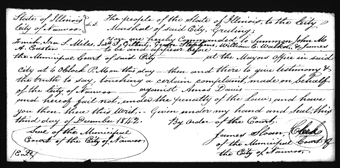 State of Illinois } The people of the State of Illinois, to the City
City of Nauvoo. } Marshal of said City, Greeting:
You are hereby Commanded to Summon John M
Ira S. Miles, William E. & James
to be and appear before
the Municipal Court of said City at the Mayor's office in said
City at 6 o'clock P.M. this day then and there to give testimony &
the truth to say, touching a certain complaint made, on behalf
of the City of Nauvoo against Amos Davis
and hereof fail not, under the penalty of the Law; and have
you then there this Writ. Given under my hand and seal, this
third day of December 1842. By Order of the Court.
Seal of the Municipal
Court of the City of Nauvoo
James Sloan, Clerk
of the Municipal Court of
the City of Nauvoo.